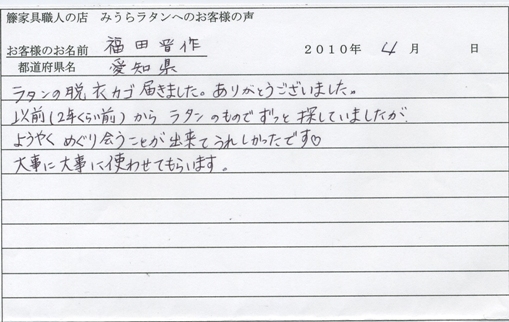 籐家具職人の店　みうらラタンへのお客様の声
お客様のお名前　福田晋作　2010年　4月　　日
都道府県名　愛知県
ラタンの脱衣カゴ届きました。ありがとうございました。
以前（2年くらい前）から ラタンのものでずっと探していましたが
ようやく めぐり会うことが出来てうれしかったです♡
大事に大事に使わせてもらいます。